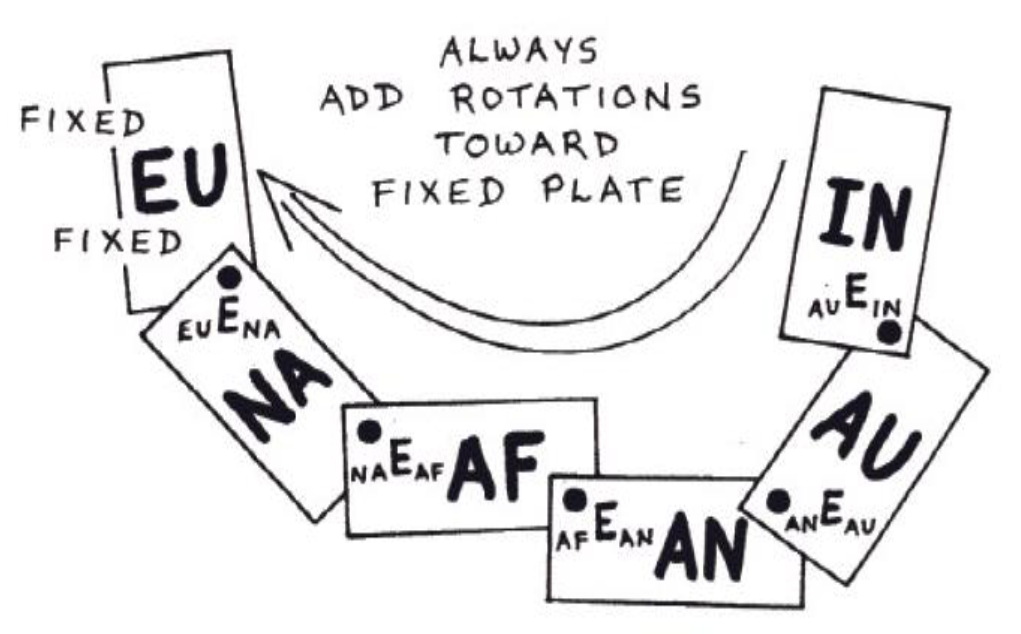 ALWAYS
ADD ROTATIONS
TOWARD
FIXED PLATE
FIXED
EU
FIXED
EUENA
NA
NAEAF AF
AFEAN AN
ANEAU
AU
IN
AUEIN